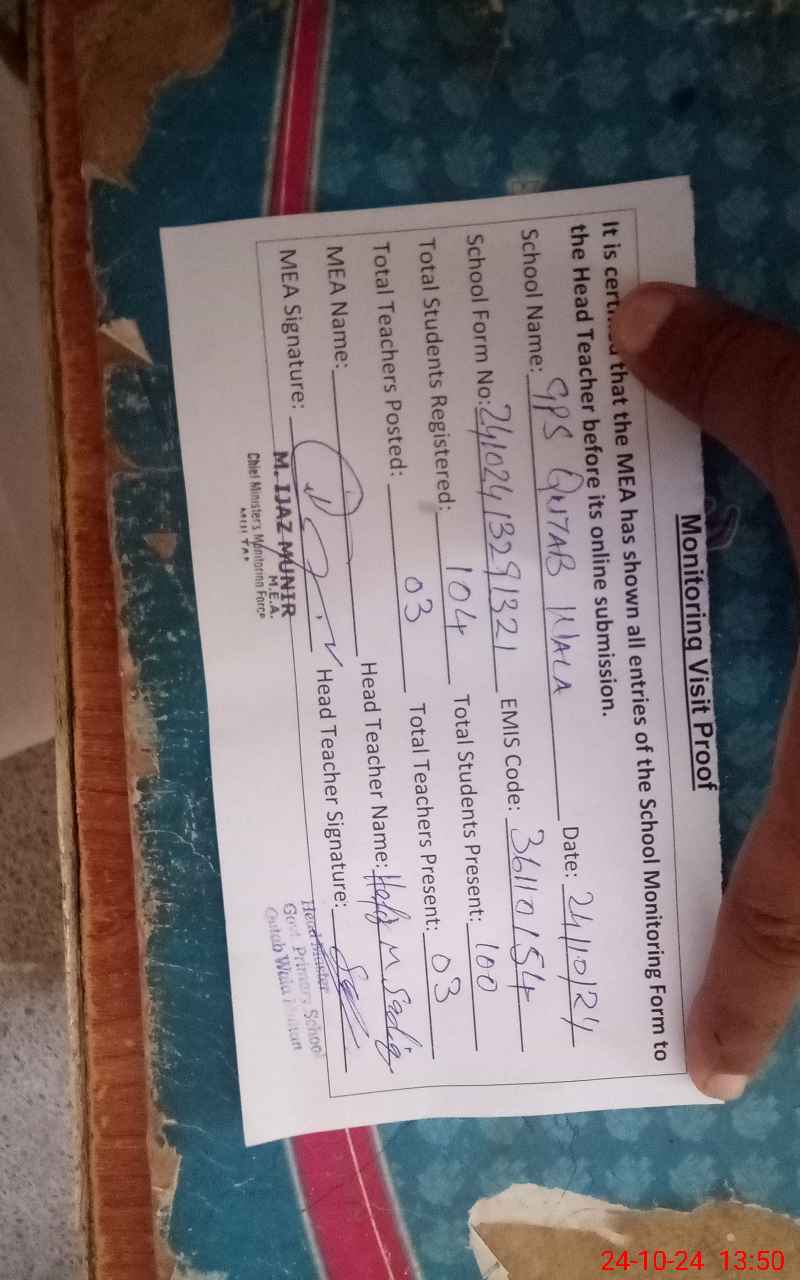 Monitoring Visit Proof
It is that the MEA has shown all entries of the School Monitoring Form to
the Head Teacher before its online submission.
School Name: GPS QUTAB WALA Date: 24/10/24
School Form No: 24102413291321 EMIS Code: 36110154
Total Students Registered: 104 Total Students Present: 100
Total Teachers Posted: 03 Total Teachers Present: 03
MEA Name: Head Teacher Name: M Sadiq
MEA Signature: Head Teacher Signature:
M. IJAZ MUNIR
M.E.A.
Chief Minister's Monitoring Force
Head
Govt Primary School
Qutab Wala
24-10-24 13:50